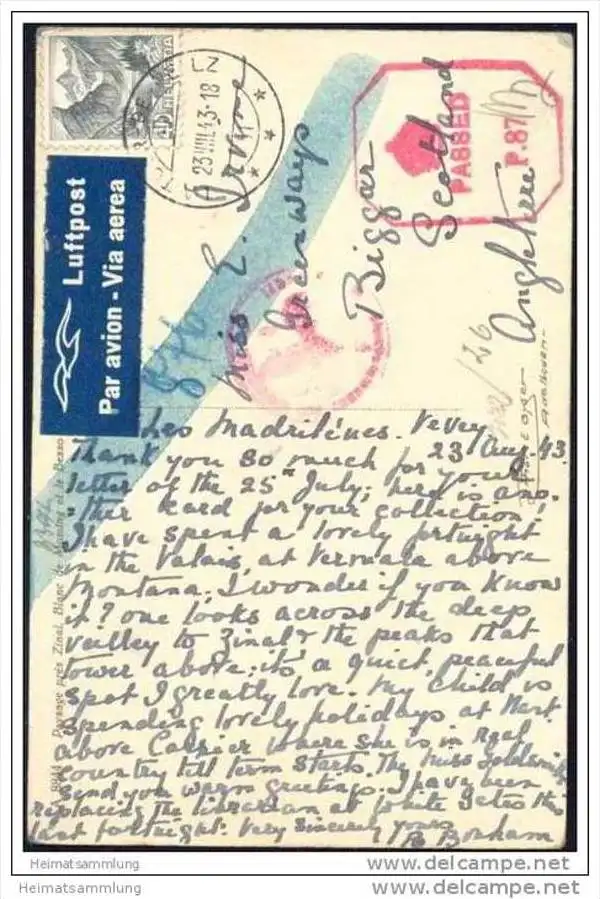 40
HELVETIA
23.VIII.43-18
PASSED
P.87
Luftpost
Par avion - Via aerea
Miss E. Irvine
Greenways
Biggar
Scotland
Angleterre
Les Madrilènes. Vevey
23 Aug. 43
Thank you so much for your
letter of the 25th July; here is ano-
ther card for your collection!
I have spent a lovely fortnight
in the Valais, at Vermala above
Montana; I wonder if you know
it? one looks across the deep
valley to Zinal & the peaks that
tower above; it's a quiet, peaceful
spot I greatly love. My child is
spending lovely holidays at
above where she is in real
country till term starts. The Miss
send you warm greetings. I have been
replacing the librarian at White Gates this
last fortnight. Very Sincerely yours
B Bonham
8944 Paysage près Zinal, Blanc de Moming et le Besso
Heimatsammlung
Heimatsammlung
www.delcampe.net
www.delcampe.net